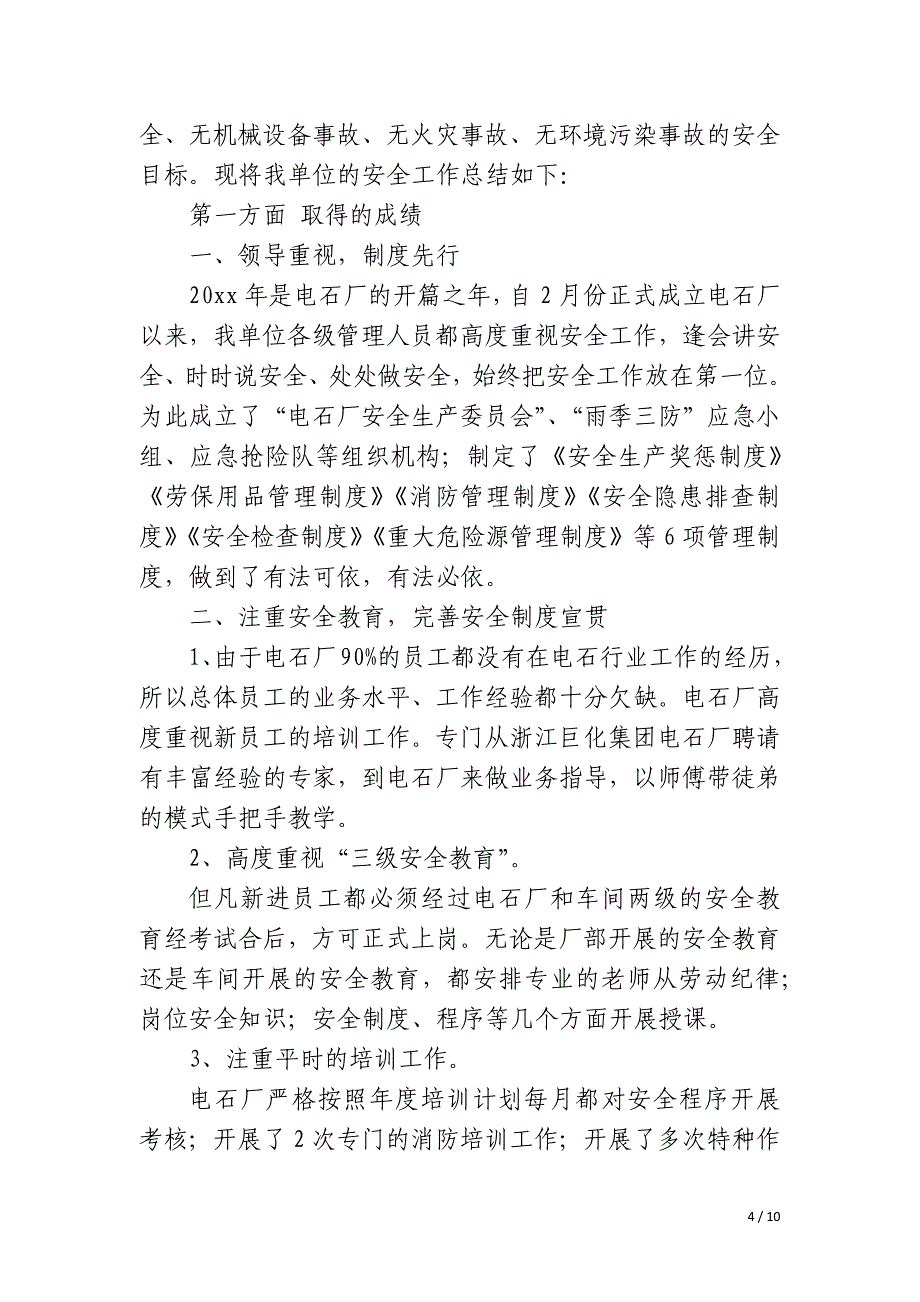 全、无机械设备事故、无火灾事故、无环境污染事故的安全
目标。现将我单位的安全工作总结如下：
第一方面 取得的成绩
一、领导重视，制度先行
20xx 年是电石厂的开篇之年，自 2 月份正式成立电石厂
以来，我单位各级管理人员都高度重视安全工作，逢会讲安
全、时时说安全、处处做安全，始终把安全工作放在第一位。
为此成立了“电石厂安全生产委员会”、“雨季三防”应急小
组、应急抢险队等组织机构；制定了《安全生产奖惩制度》
《劳保用品管理制度》《消防管理制度》《安全隐患排查制
度》《安全检查制度》《重大危险源管理制度》等 6 项管理制
度，做到了有法可依，有法必依。
二、注重安全教育，完善安全制度宣贯
1、由于电石厂 90%的员工都没有在电石行业工作的经历，
所以总体员工的业务水平、工作经验都十分欠缺。电石厂高
度重视新员工的培训工作。专门从浙江巨化集团电石厂聘请
有丰富经验的专家，到电石厂来做业务指导，以师傅带徒弟
的模式手把手教学。
2、高度重视“三级安全教育”。
但凡新进员工都必须经过电石厂和车间两级的安全教
育经考试合后，方可正式上岗。无论是厂部开展的安全教育
还是车间开展的安全教育，都安排专业的老师从劳动纪律；
岗位安全知识；安全制度、程序等几个方面开展授课。
3、注重平时的培训工作。
电石厂严格按照年度培训计划每月都对安全程序开展
考核；开展了 2 次专门的消防培训工作；开展了多次特种作
4 / 10